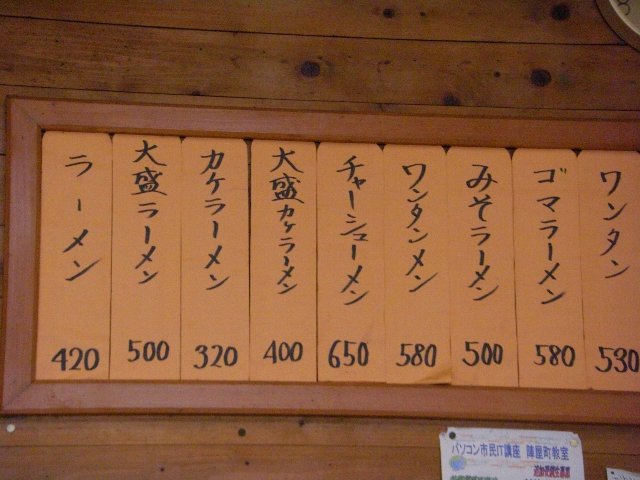 ラーメン
420
大盛ラーメン
500
カケラーメン
320
大盛カケラーメン
400
チャーシューメン
650
ワンタンメン
580
みそラーメン
500
ゴマラーメン
580
ワンタン
530
パソコン市民IT講座 陣屋町教室